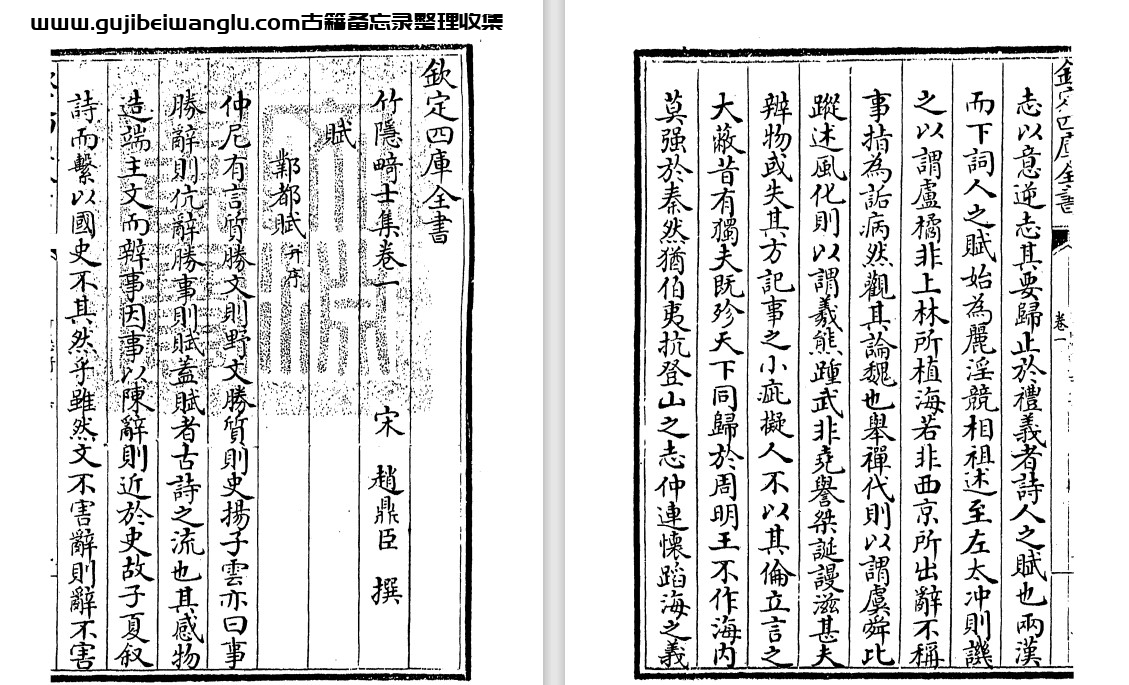 www.gujibeiwanglu.com古籍备忘录整理收集
欽定四庫全書
竹隱畸士集卷一
宋 趙鼎臣 撰
賦
鄴都賦 并序
仲尼有言質勝文則野文勝質則史揚子雲亦曰事
勝辭則伉辭勝事則賦蓋賦者古詩之流也其感物
造端主文而辨事因事以陳辭則近於史故子夏叙
詩而繫以國史不其然乎雖然文不害辭則辭不害
欽定四庫全書
卷一
志以意逆志其要歸止於禮義者詩人之賦也兩漢
而下詞人之賦始為麗淫競相祖述至左太冲則譏
之以謂盧橘非上林所植海若非西京所出辭不稱
事指為詬病然觀其論魏也舉禪代則以謂虞舜比
蹤述風化則以謂羲熊踵武非堯譽桀誕謾滋甚夫
辨物或失其方記事之小疵擬人不以其倫立言之
大蔽昔有獨夫既殄天下同歸於周明王不作海内
莫强於秦然猶伯夷抗登山之志仲連懷蹈海之義